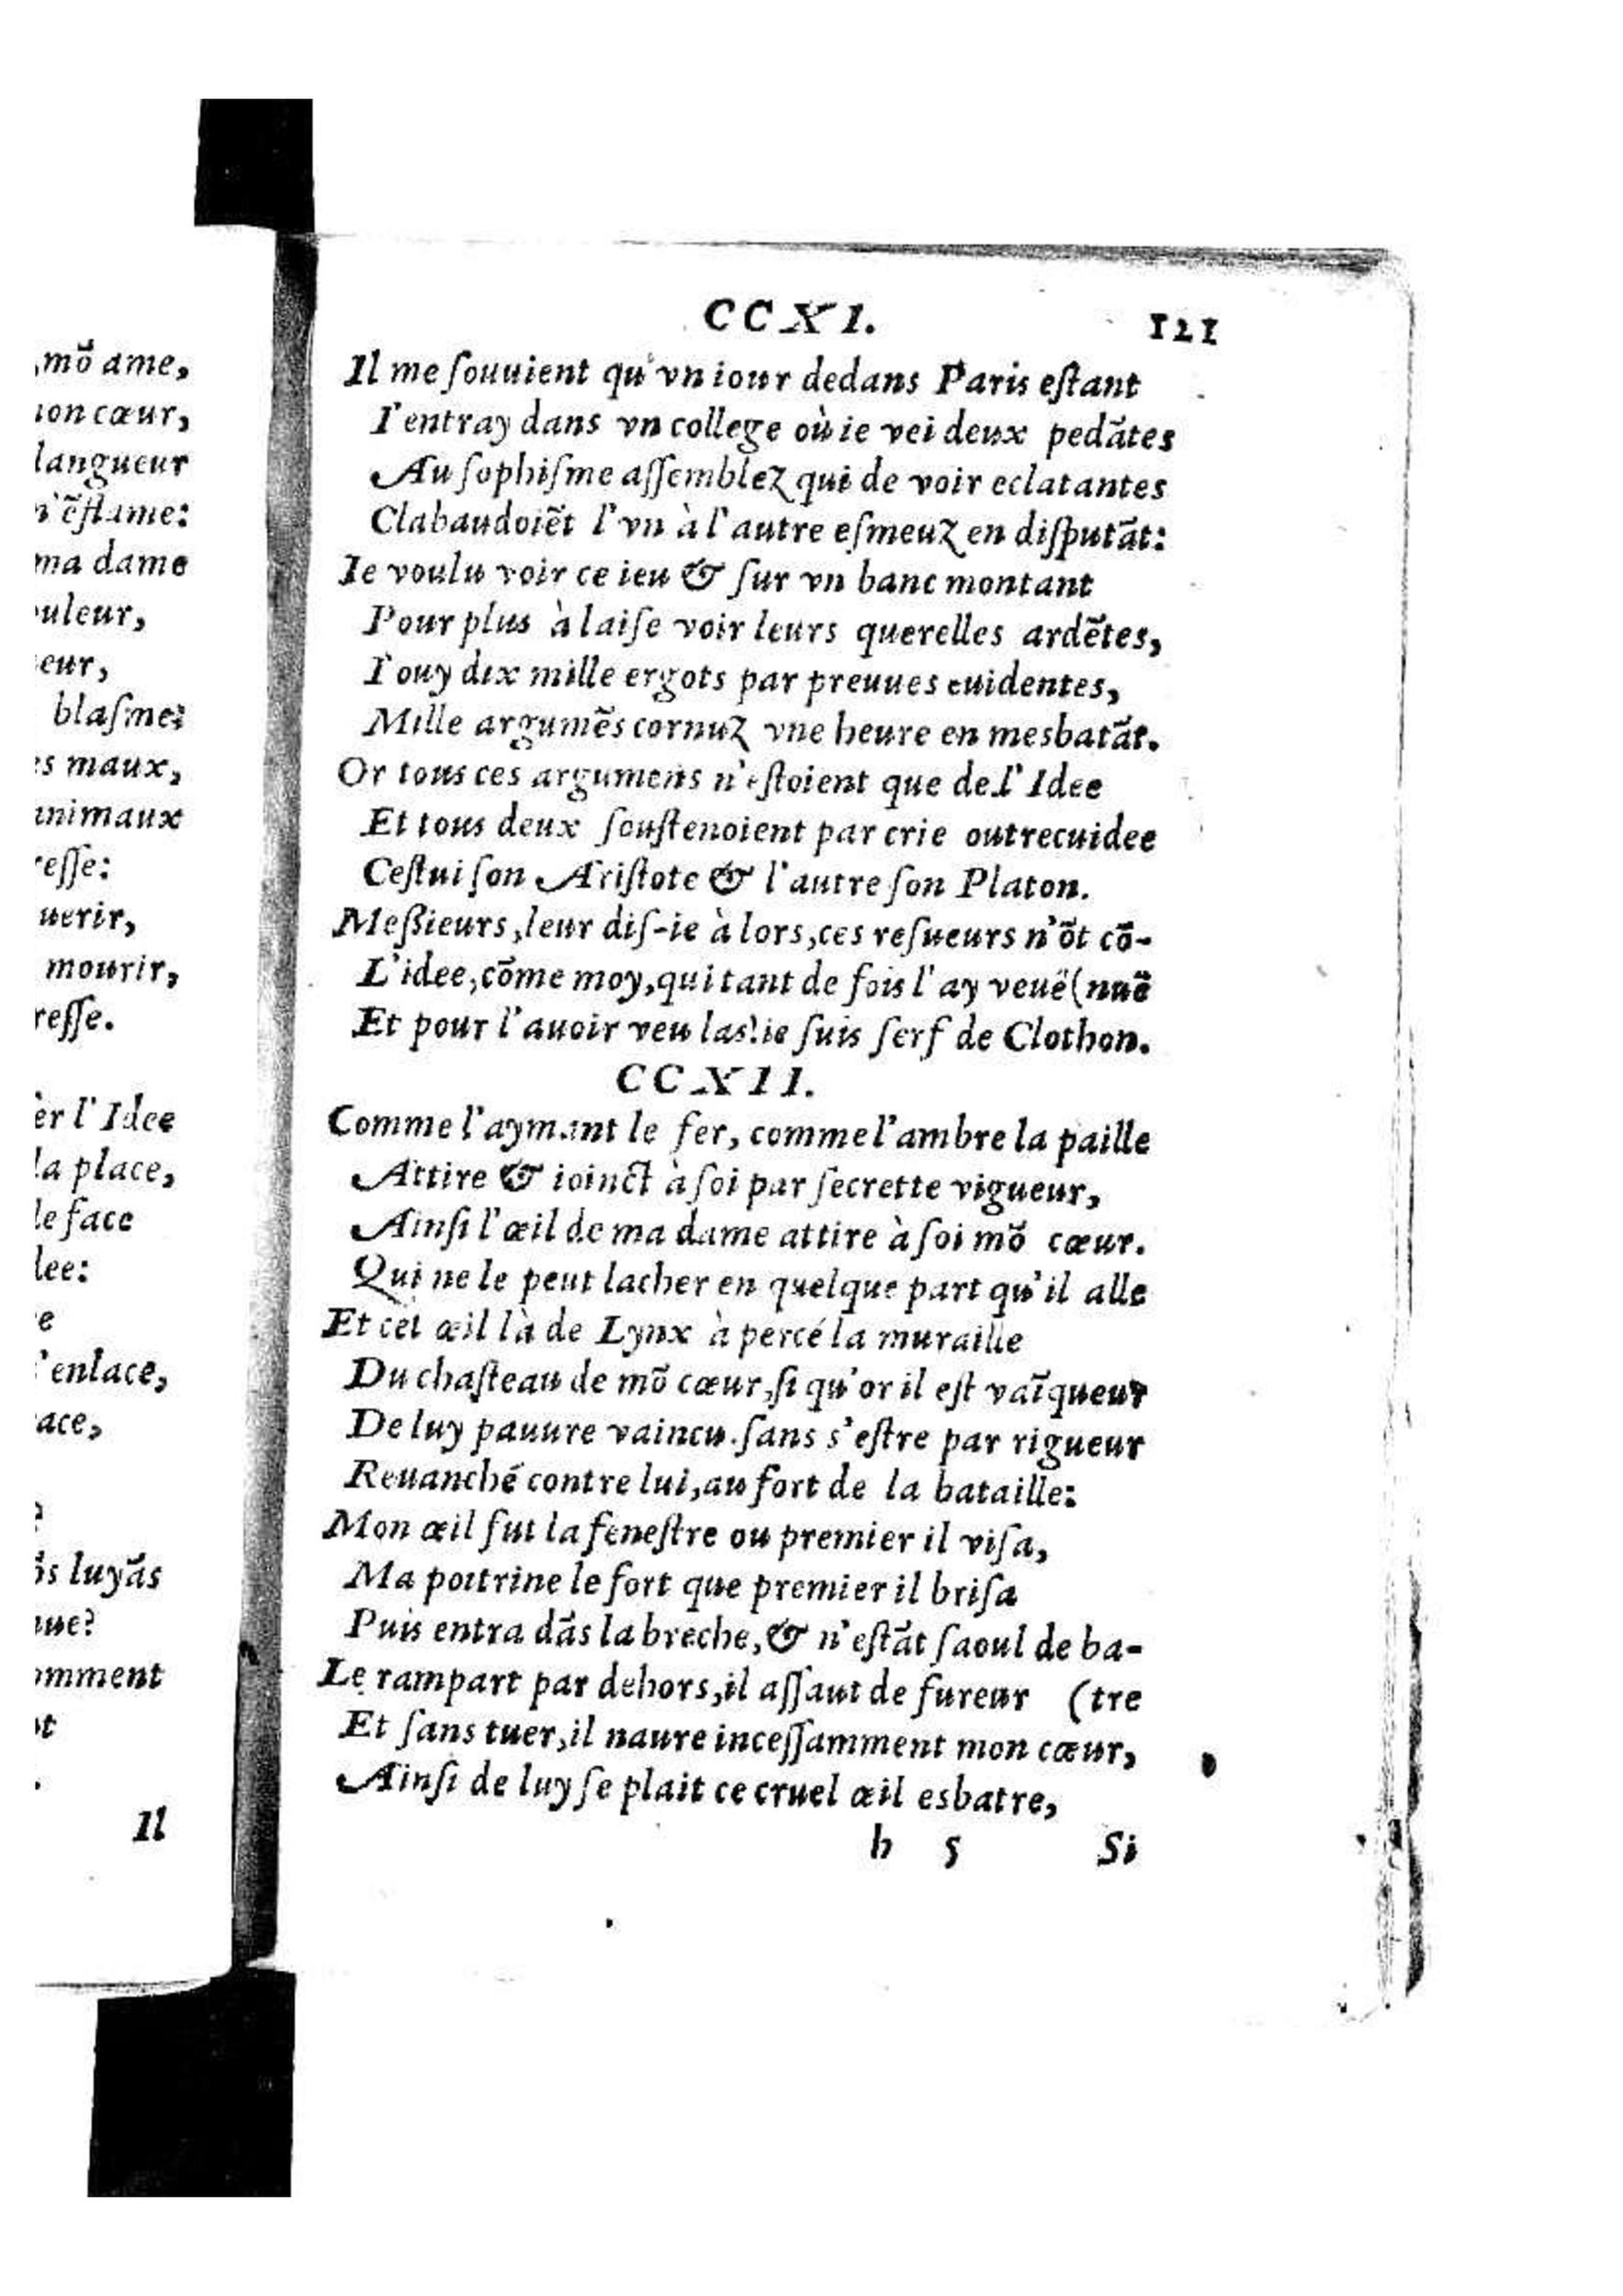 ,mõ ame,
ion cœur,
langueur
n'ẽſtame:
ma dame
uleur,
eur,
blaſme:
s maux,
nimaux
reſſe:
uerir,
mourir,
reſſe.
èr l'Idee
la place,
le face
lee:
e
'enlace,
ace,
s luyãs
ue?
omment
t
.
Il
CCXI. 121
Il me ſouuient qu'vn iour dedans Paris eſtant
I'entray dans vn college où ie vei deux pedãtes
Au ſophiſme aſſemblez qui de voir eclatantes
Clabaudoiẽt l'vn à l'autre eſmeuz en diſputãt:
Ie voulu voir ce ieu & ſur vn banc montant
Pour plus à laiſe voir leurs querelles ardẽtes,
I'ouy dix mille ergots par preuues euidentes,
Mille argumẽs cornuz vne heure en mesbatãt.
Or tous ces argumens n'eſtoient que de l'Idee
Et tous deux ſouſtenoient par crie outrecuidee
Ceſtui ſon Ariſtote & l'autre ſon Platon.
Meßieurs, leur diſ-ie à lors, ces reſueurs n'õt cõ-
L'idee, cõme moy, qui tant de fois l'ay veuë (nuë
Et pour l'auoir veu las! ie ſuis ſerf de Clothon.
CCXII.
Comme l'aymant le fer, comme l'ambre la paille
Attire & ioinct à ſoi par ſecrette vigueur,
Ainſi l'œil de ma dame attire à ſoi mõ cœur.
Qui ne le peut lacher en quelque part qu'il alle
Et cet œil là de Lynx à percé la muraille
Du chaſteau de mõ cœur, ſi qu'or il eſt vaĩqueur
De luy pauure vaincu. ſans s'eſtre par rigueur
Reuanché contre lui, au fort de la bataille:
Mon œil fut la feneſtre ou premier il viſa,
Ma poitrine le fort que premier il briſa
Puis entra dãs la breche, & n'eſtãt ſaoul de ba-
Le rampart par dehors, il aſſaut de fureur (tre
Et ſans tuer, il naure inceſſamment mon cœur,
Ainſi de luy ſe plait ce cruel œil esbatre,
h 5 Si